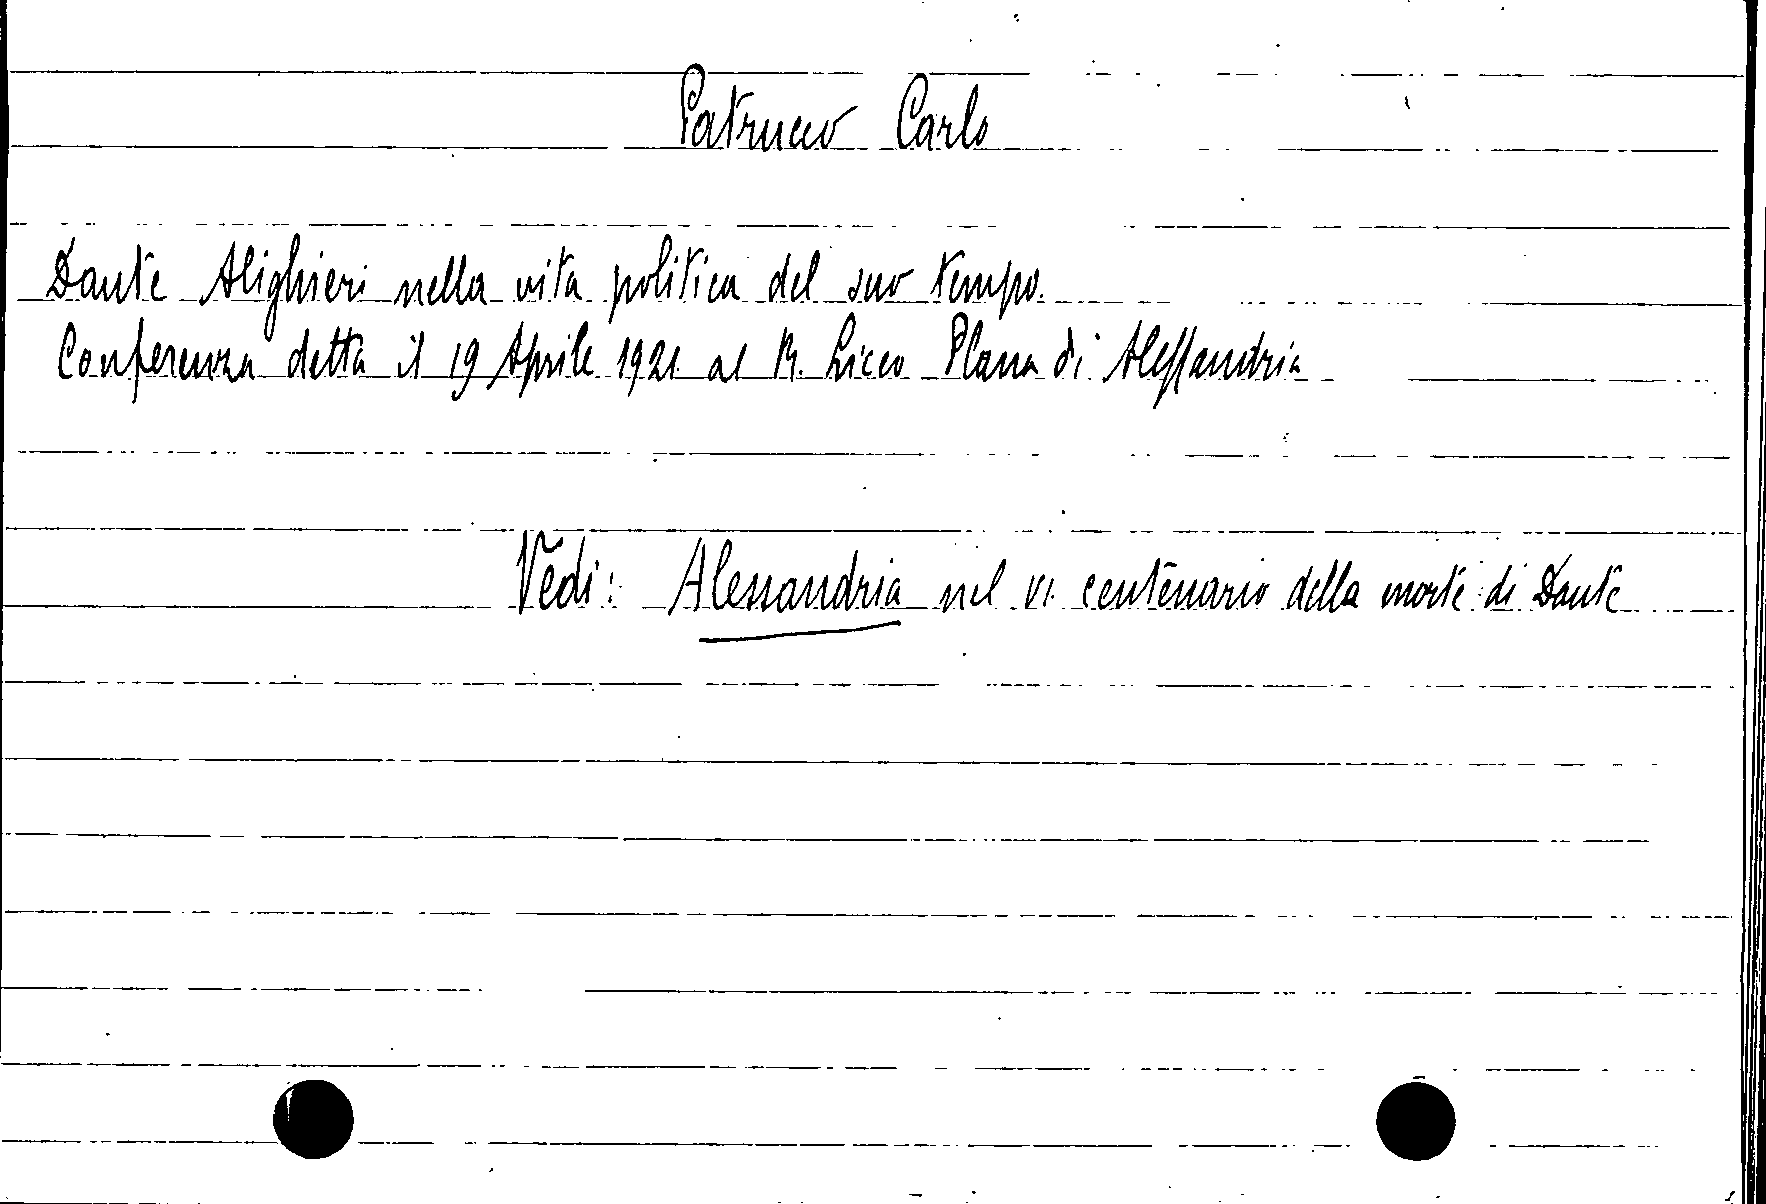 Patrucco Carlo
Dante Alighieri nella vita politica del suo tempo.
Conferenza detta il 19 Aprile 1921 al R. Liceo Plana di Alessandria
Vedi: Alessandria nel VI centenario della morte di Dante